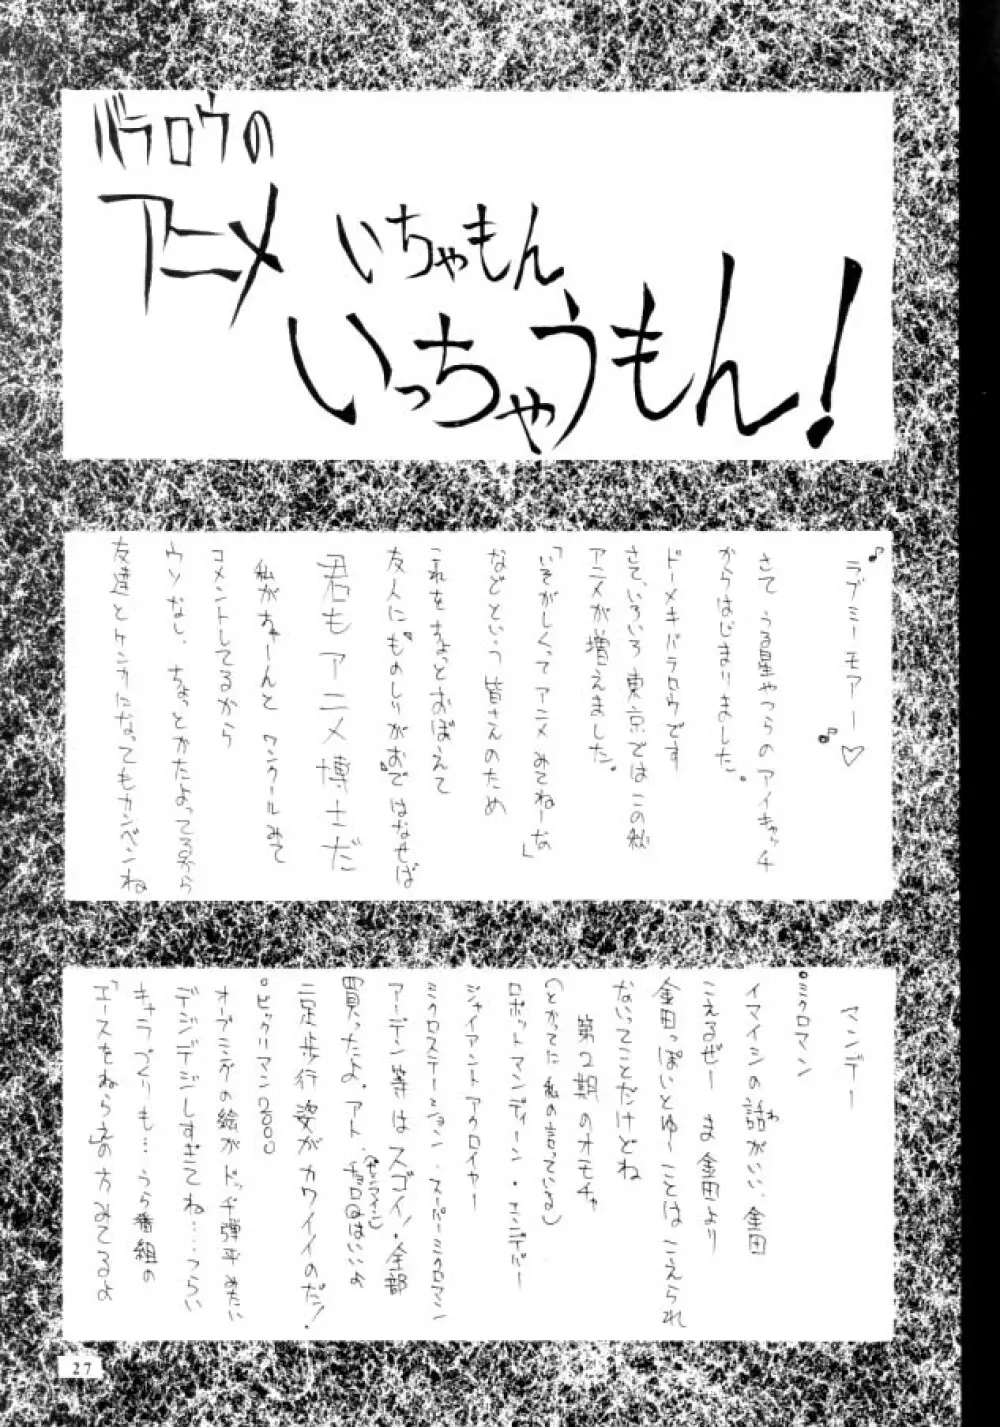 バラロウの
アニメ
いちゃもん
いっちゃうもん!
ラブミーモアー♡
さて うる星やつらのアイキャッチ
からはじまりました。
ドーメキバラロウです
さて、いろいろ東京ではこの秋
アニメが増えました。
「いそがしくってアニメみてねーな」
などという皆さんのため
これをちょっとおぼえて
友人に"ものしりがお"ではなせば
君もアニメ博士だ
私がちゃーんとワンクールみて
コメントしてるから
ウソなし、ちょっとかたよってるから
友達とケンカになってもカンベンね
マンデー
°ミクロマン
イマイシの話がいい、金田
こえるぜー ま 金田より
金田っぽいとゆーことはこえられ
ないってことだけどね
第2期のオモチャ
(とかってに私の言っている)
ロボットマンディーン・エンデバー
ジャイアントアクロイヤー
ミクロステーション・スーパーミクロマン
アーデン等はスゴイ!全部
買ったよ。アト、チョロQはいいよ
(ポンプマン)
二足歩行姿がカワイイのだ!
°ビックリマン2000
オープニングの絵がドッヂ弾平みたい
デジデジしすぎてね…つらい
キャラづくりも…うら番組の
「エースをねらえ」の方みてるよ
27